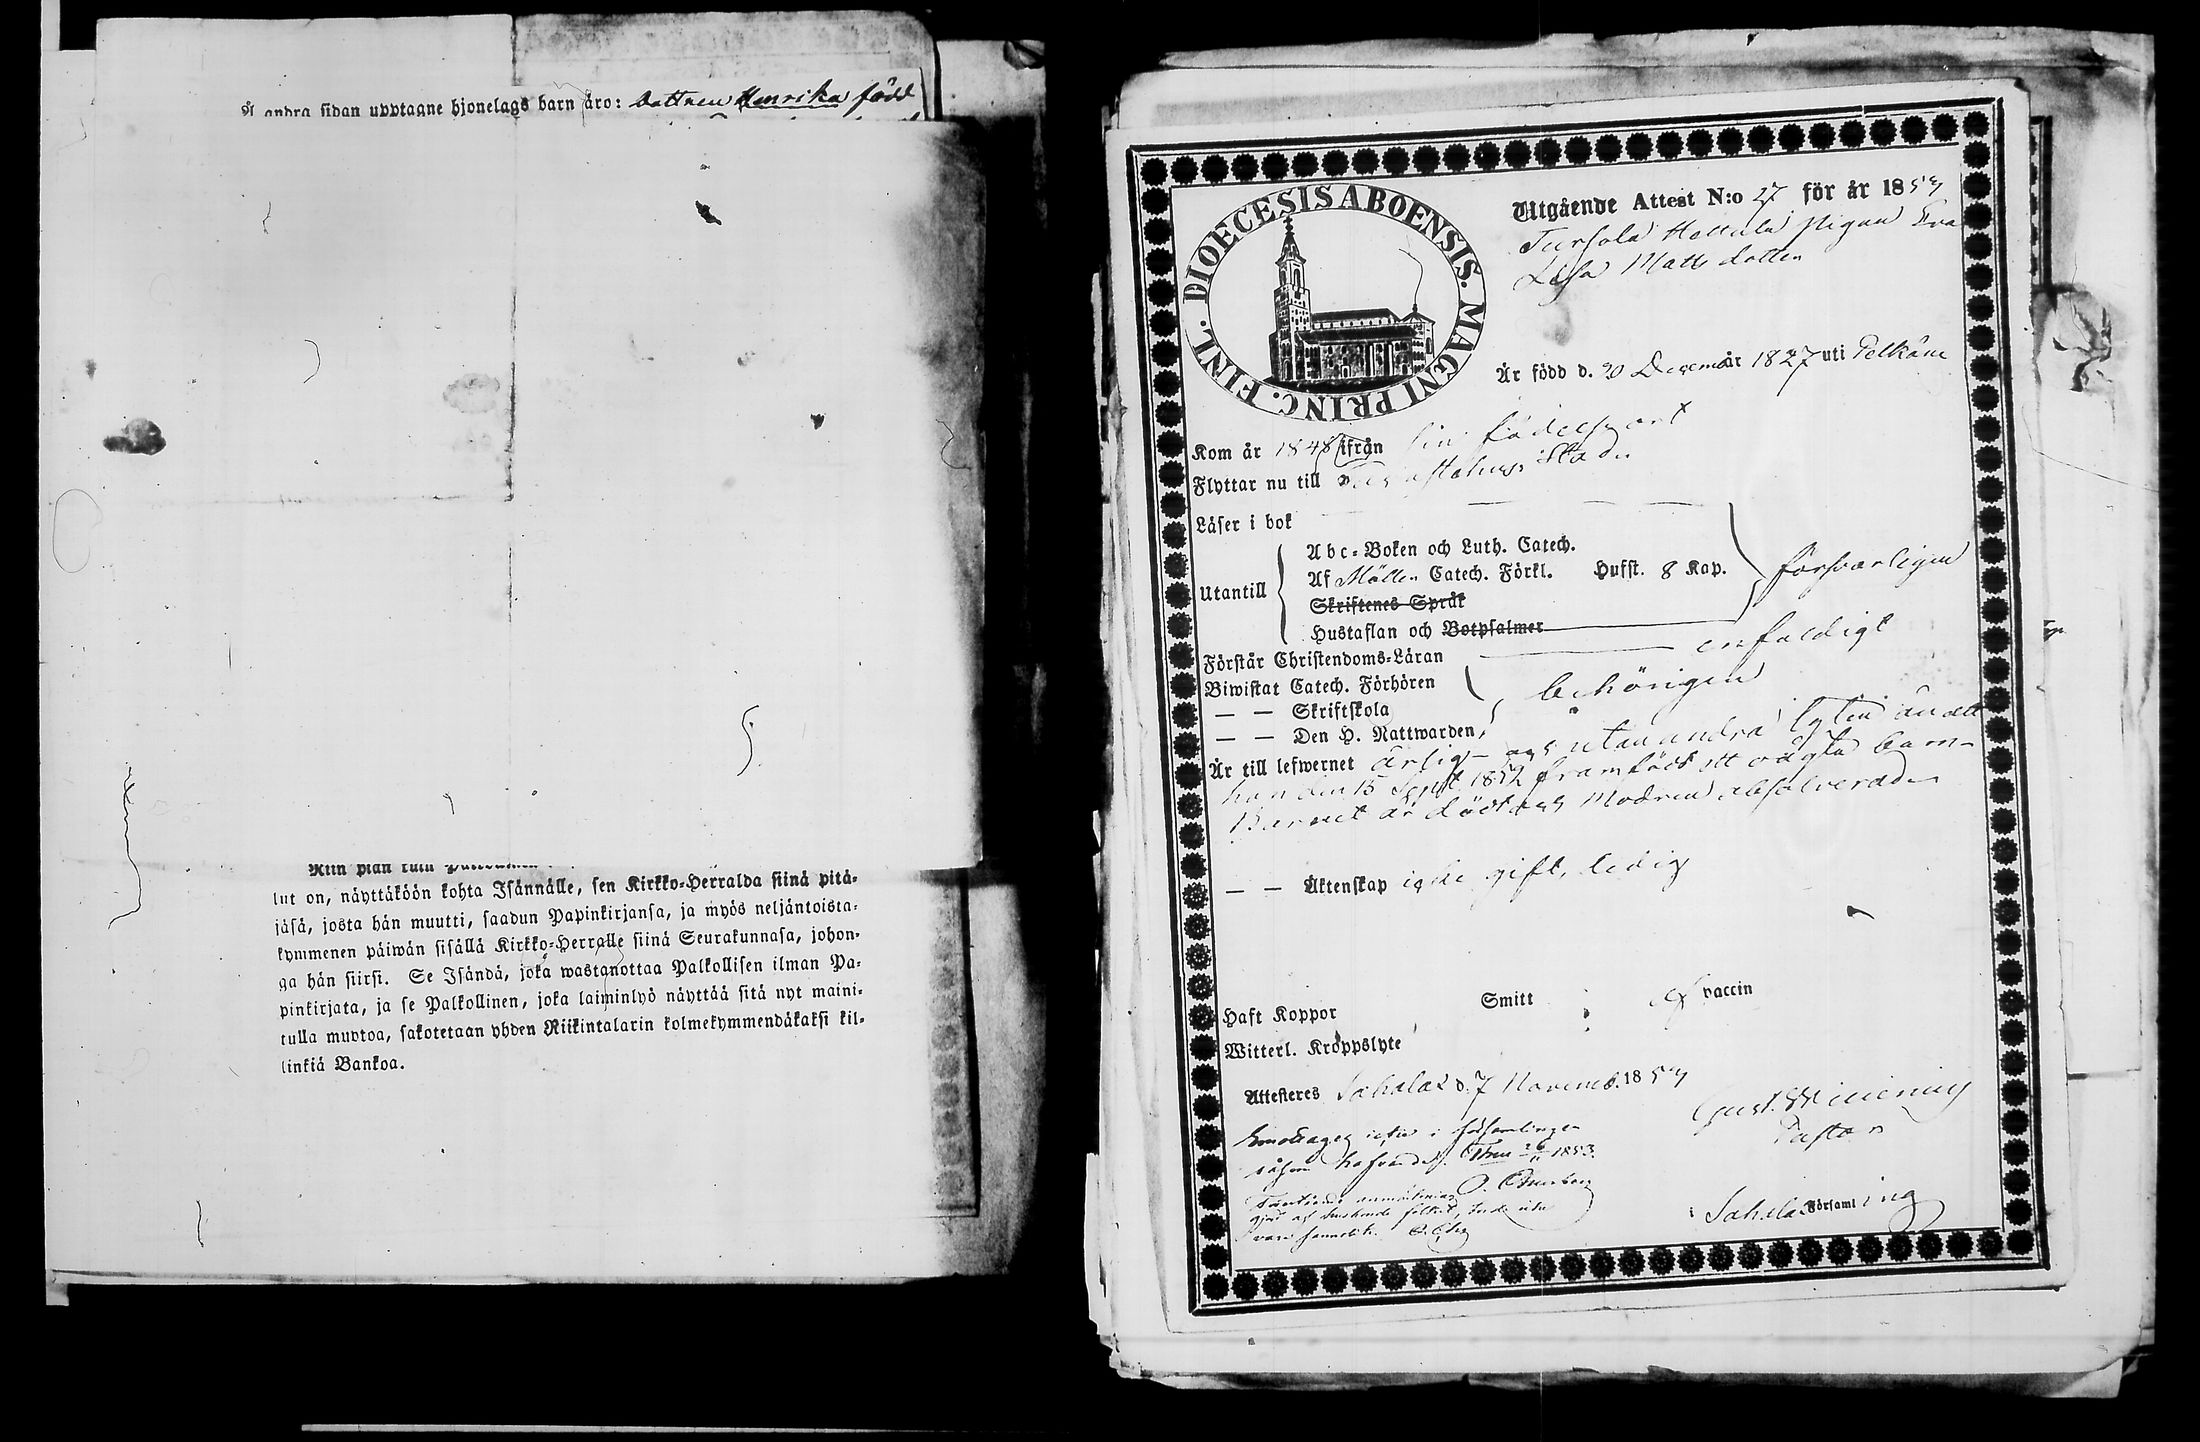 Å andra sidan upptagne hjonelags barn äro: Dottren Henrika född
Niin pian kuin
lut on, näyttäköön kohta Isännälle, sen Kirkko-Herralda siinä pitä-
jäsä, josta hän muutti, saadun Papinkirjansa, ja myös neljäntoista-
kymmenen päiwän sisällä Kirkko-Herralle siinä Seurakunnasa, johon-
ga hän siirsi. Se Isändä, joka wastanottaa Palkollisen ilman Pa-
pinkirjata, ja se Palkollinen, joka laiminlyö näyttää sitä nyt maini-
tulla muotoa, sakotetaan yhden Riikintalarin kolmekymmendäkaksi kil-
linkiä Bankoa.
DIOECESIS ABOENSIS. MAGNI PRINC. FINL.
Utgående Attest N:o 27 för år 1853
Tursola Hollula pigan Eva
Lisa Matts dotter
Är född d. 20 Decemb år 1827 uti Pelkäne
Kom år 1848 ifrån sin födelseort
Flyttar nu till Tavastehus Stad
Läser i bok
Utantill
Abc-Boken och Luth. Catech.
Af Möllers Catech. Förkl. Husst. 8 Kap. försvarligen
Skriftenes Språk
Hustaflan och Botpsalmer
Förstår Christendoms-Läran enfaldigt
Biwistat Catech. Förhören
— — Skriftskola behörigen
— — Den H. Nattwarden
Är till lefwernet ärlig och utan andra lyten än att
hon den 15 Sept 1852 framfödt ett oägta barn
Barnet är dödt och Modren absolverad
— — Äktenskap icke gift, ledig
Haft Koppor Smitt af vaccin
Witterl. Kroppslyte
Attesteres Sahalax d. 7 Novemb. 1853
Gust. Winning
Pastor
i Sahalax Församling
Emottages icke i församlingen
såsom hafvande. Thus 26/11 1853.